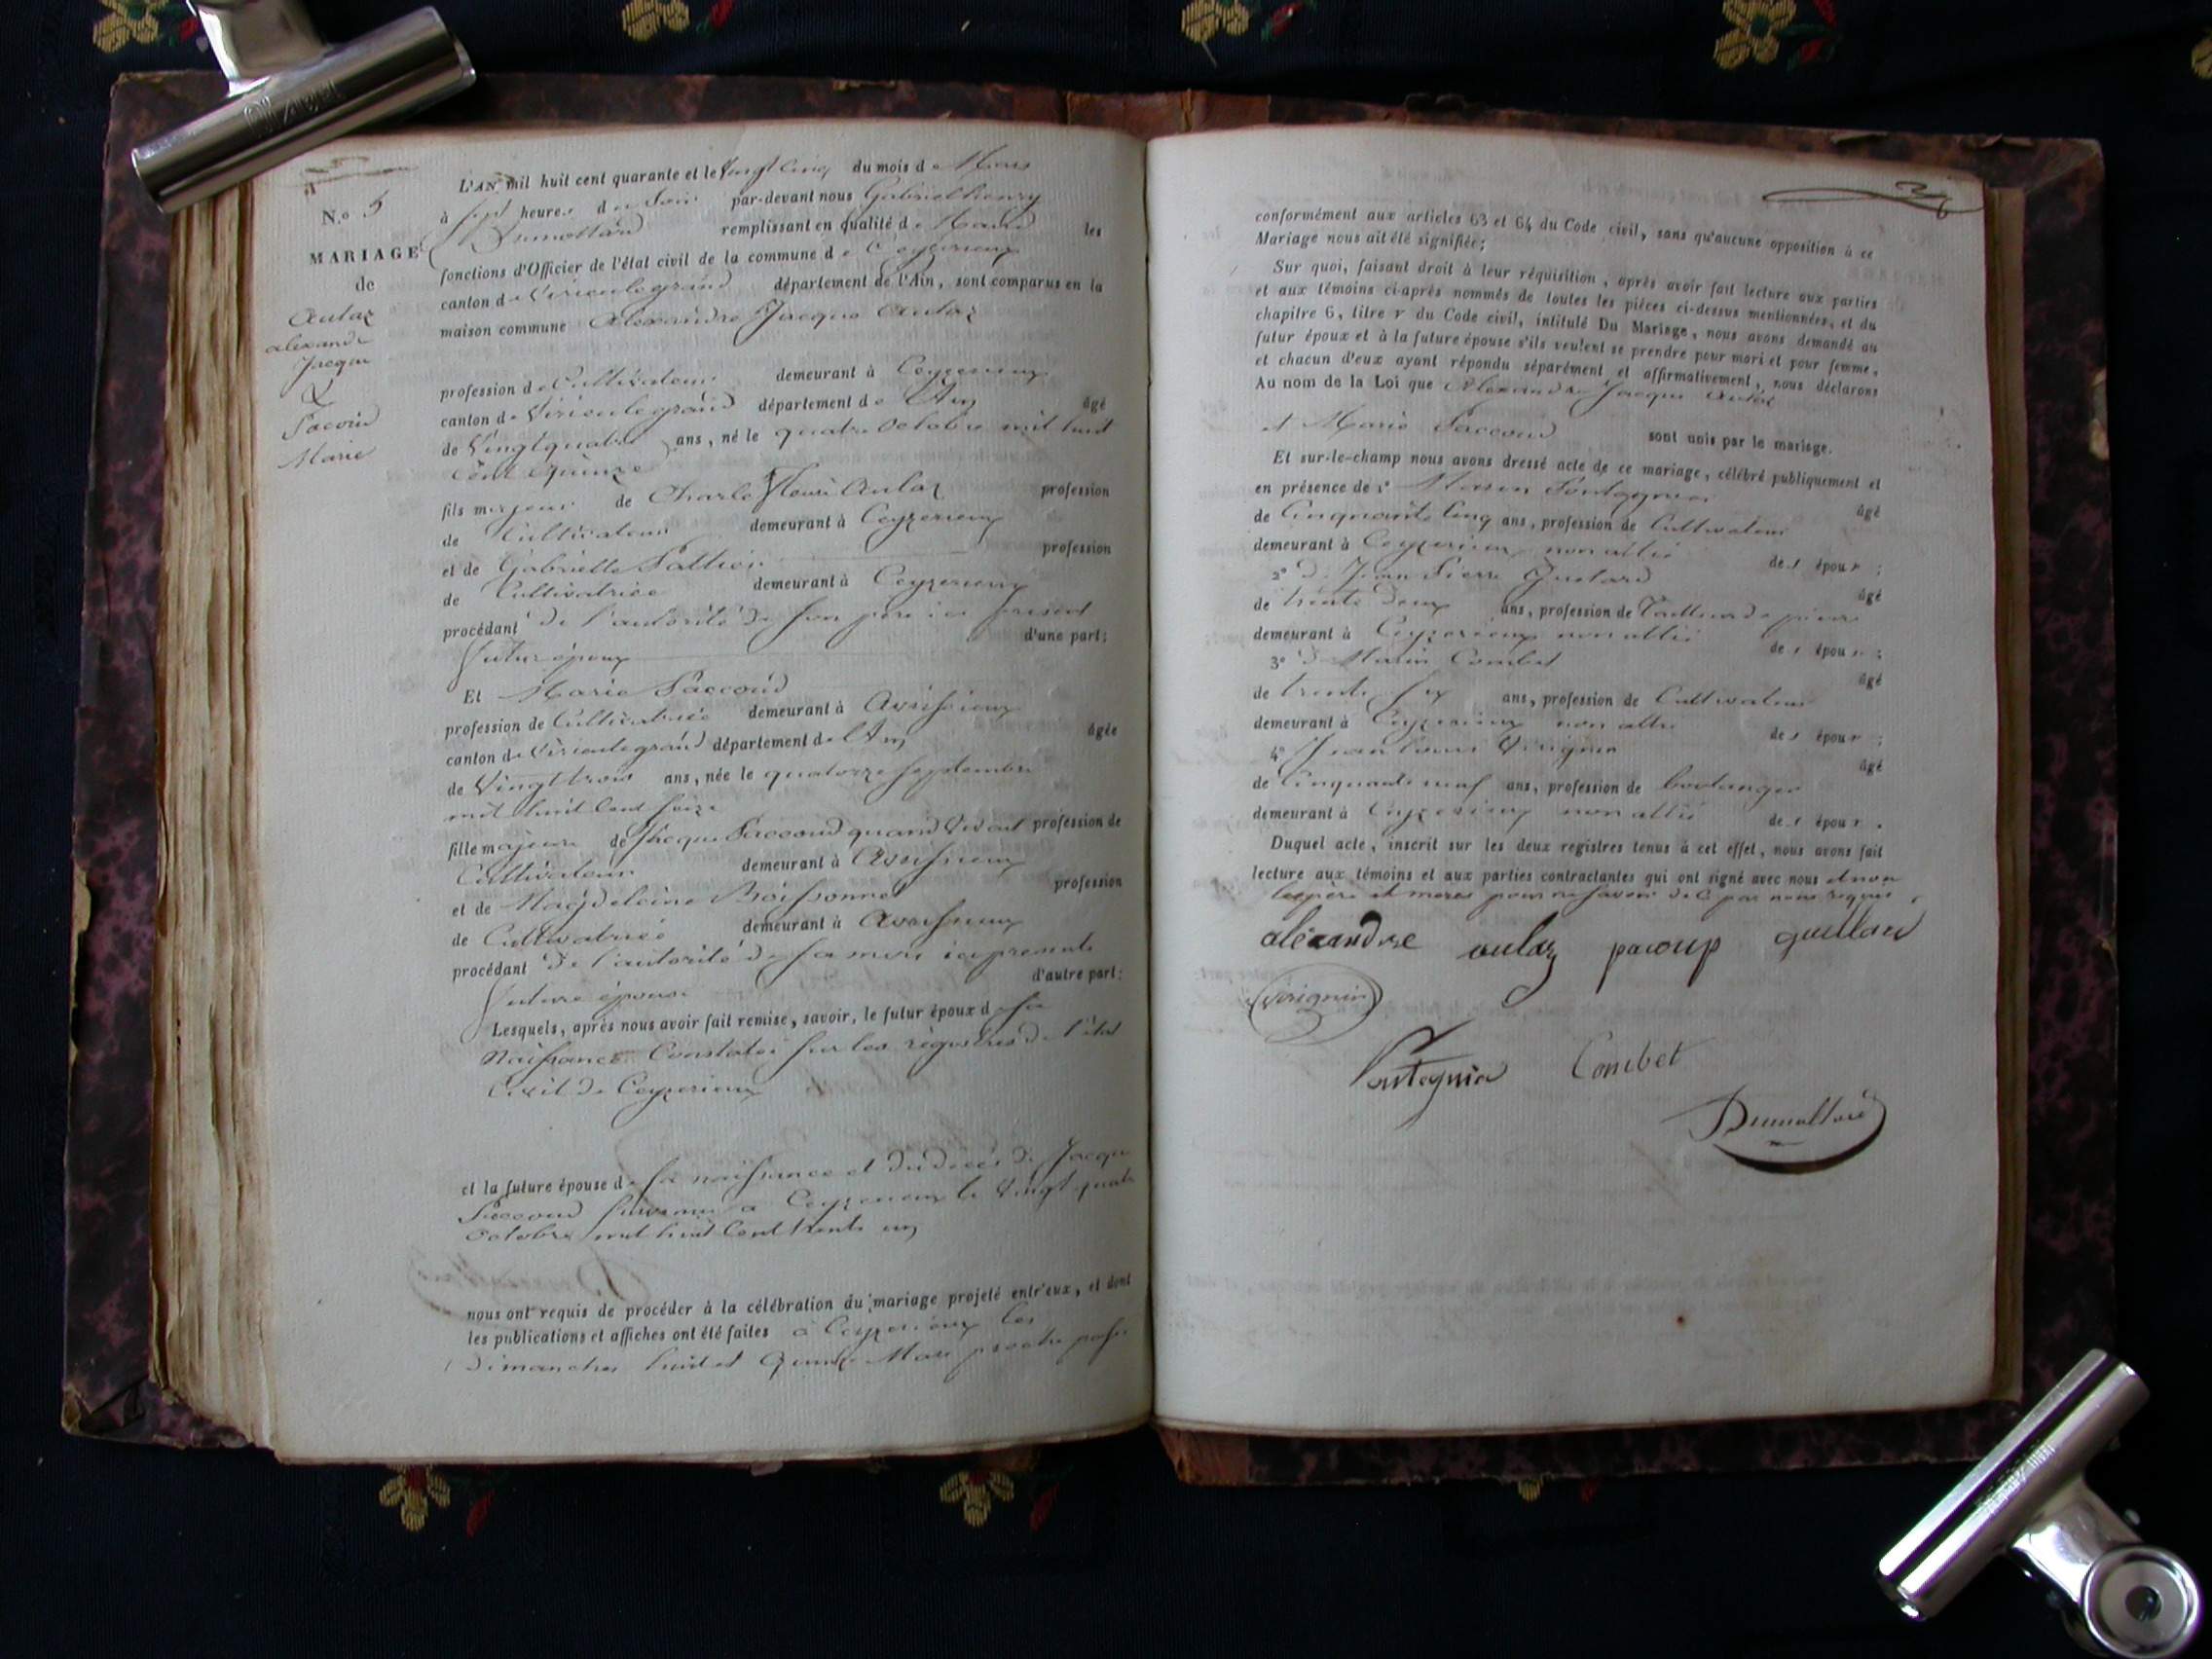 N.o 5
MARIAGE
de
Aulaz
alexandre
Jacque
&
Pacoud
Marie
L'AN mil huit cent quarante et le Vingt Cinq du mois de Mars
à sept heures du Soir par-devant nous Gabriel henry
Dumollard remplissant en qualité de Maire les
fonctions d'Officier de l'état civil de la commune de Ceyzerieux
canton de Virieulegrand département de l'Ain, sont comparus en la
maison commune Alexandre Jacque Aulaz
profession de Cultivateur demeurant à Ceyzerieux
canton de Virieulegrand département de l'Ain âgé
de Vingtquatre ans, né le quatre Octobre mil huit
Cent quinze
fils majeur de Charle Henri Aulaz profession
de Cultivateur demeurant à Ceyzerieux
et de Gabrielle profession
de Cultivatrice demeurant à Ceyzerieux
procédant de l'autorité de son père ici présent
d'une part;
futur époux
Et Marie Paccoud
profession de Cultivatrice demeurant à Avrissieux
canton de Virieulegrand département de l'Ain âgée
de Vingt trois ans, née le quatorze Septembre
mil huit Cent seize
fille majeure de Jacque Paccoud quand Vivait profession de
Cultivateur demeurant à Avrissieux
et de Magdeleine Boissonnet profession
de Cultivatrice demeurant à Avrissieux
procédant de l'autorité de sa mère ici presente
d'autre part:
future épouse
Lesquels, après nous avoir fait remise, savoir, le futur époux de sa
Naissance Constatée sur les régistres de l'état
Civil de Ceyzerieux
et la future épouse de sa naissance et du décès de Jacque
Paccoud survenu a Ceyzerieux le Vingt quatre
Octobre mil huit Cent trente un
nous ont requis de procéder à la célébration du mariage projeté entr'eux, et dont
les publications et affiches ont été faites à Ceyzerieux les
dimanches huit et Quinze Mars proche passé
conformément aux articles 63 et 64 du Code civil, sans qu'aucune opposition à ce
Mariage nous ait été signifiée;
Sur quoi, faisant droit à leur réquisition, après avoir fait lecture aux parties
et aux témoins ci-après nommés de toutes les pièces ci-dessus mentionnées, et du
chapitre 6, titre v du Code civil, intitulé Du Mariage, nous avons demandé au
futur époux et à la future épouse s'ils veulent se prendre pour mari et pour femme,
et chacun d'eux ayant répondu séparément et affirmativement, nous déclarons
Au nom de la Loi que Alexandre Jacque Aulaz
et Marie Paccoud sont unis par le mariage.
Et sur-le-champ nous avons dressé acte de ce mariage, célébré publiquement et
en présence de 1° Pontagnier âgé
de Cinquante Cinq ans, profession de Cultivateur
demeurant à Ceyzerieux non allié des époux;
2° de Jean Pierre âgé
de trente deux ans, profession de Tailleur de pierre
demeurant à Ceyzerieux non allié des époux;
3° de Marin Combet âgé
de trente six ans, profession de Cultivateur
demeurant à Ceyzerieux non allié des époux;
4° Jean Louis Virignin âgé
de Cinquante neuf ans, profession de boulanger
demeurant à Ceyzerieux non allié des époux.
Duquel acte, inscrit sur les deux registres tenus à cet effet, nous avons fait
lecture aux témoins et aux parties contractantes qui ont signé avec nous et non
les père et meres pour ne savoir de ce par nous requis
alexandre aulaz pacoup
Virignin
Combet
Dumollard